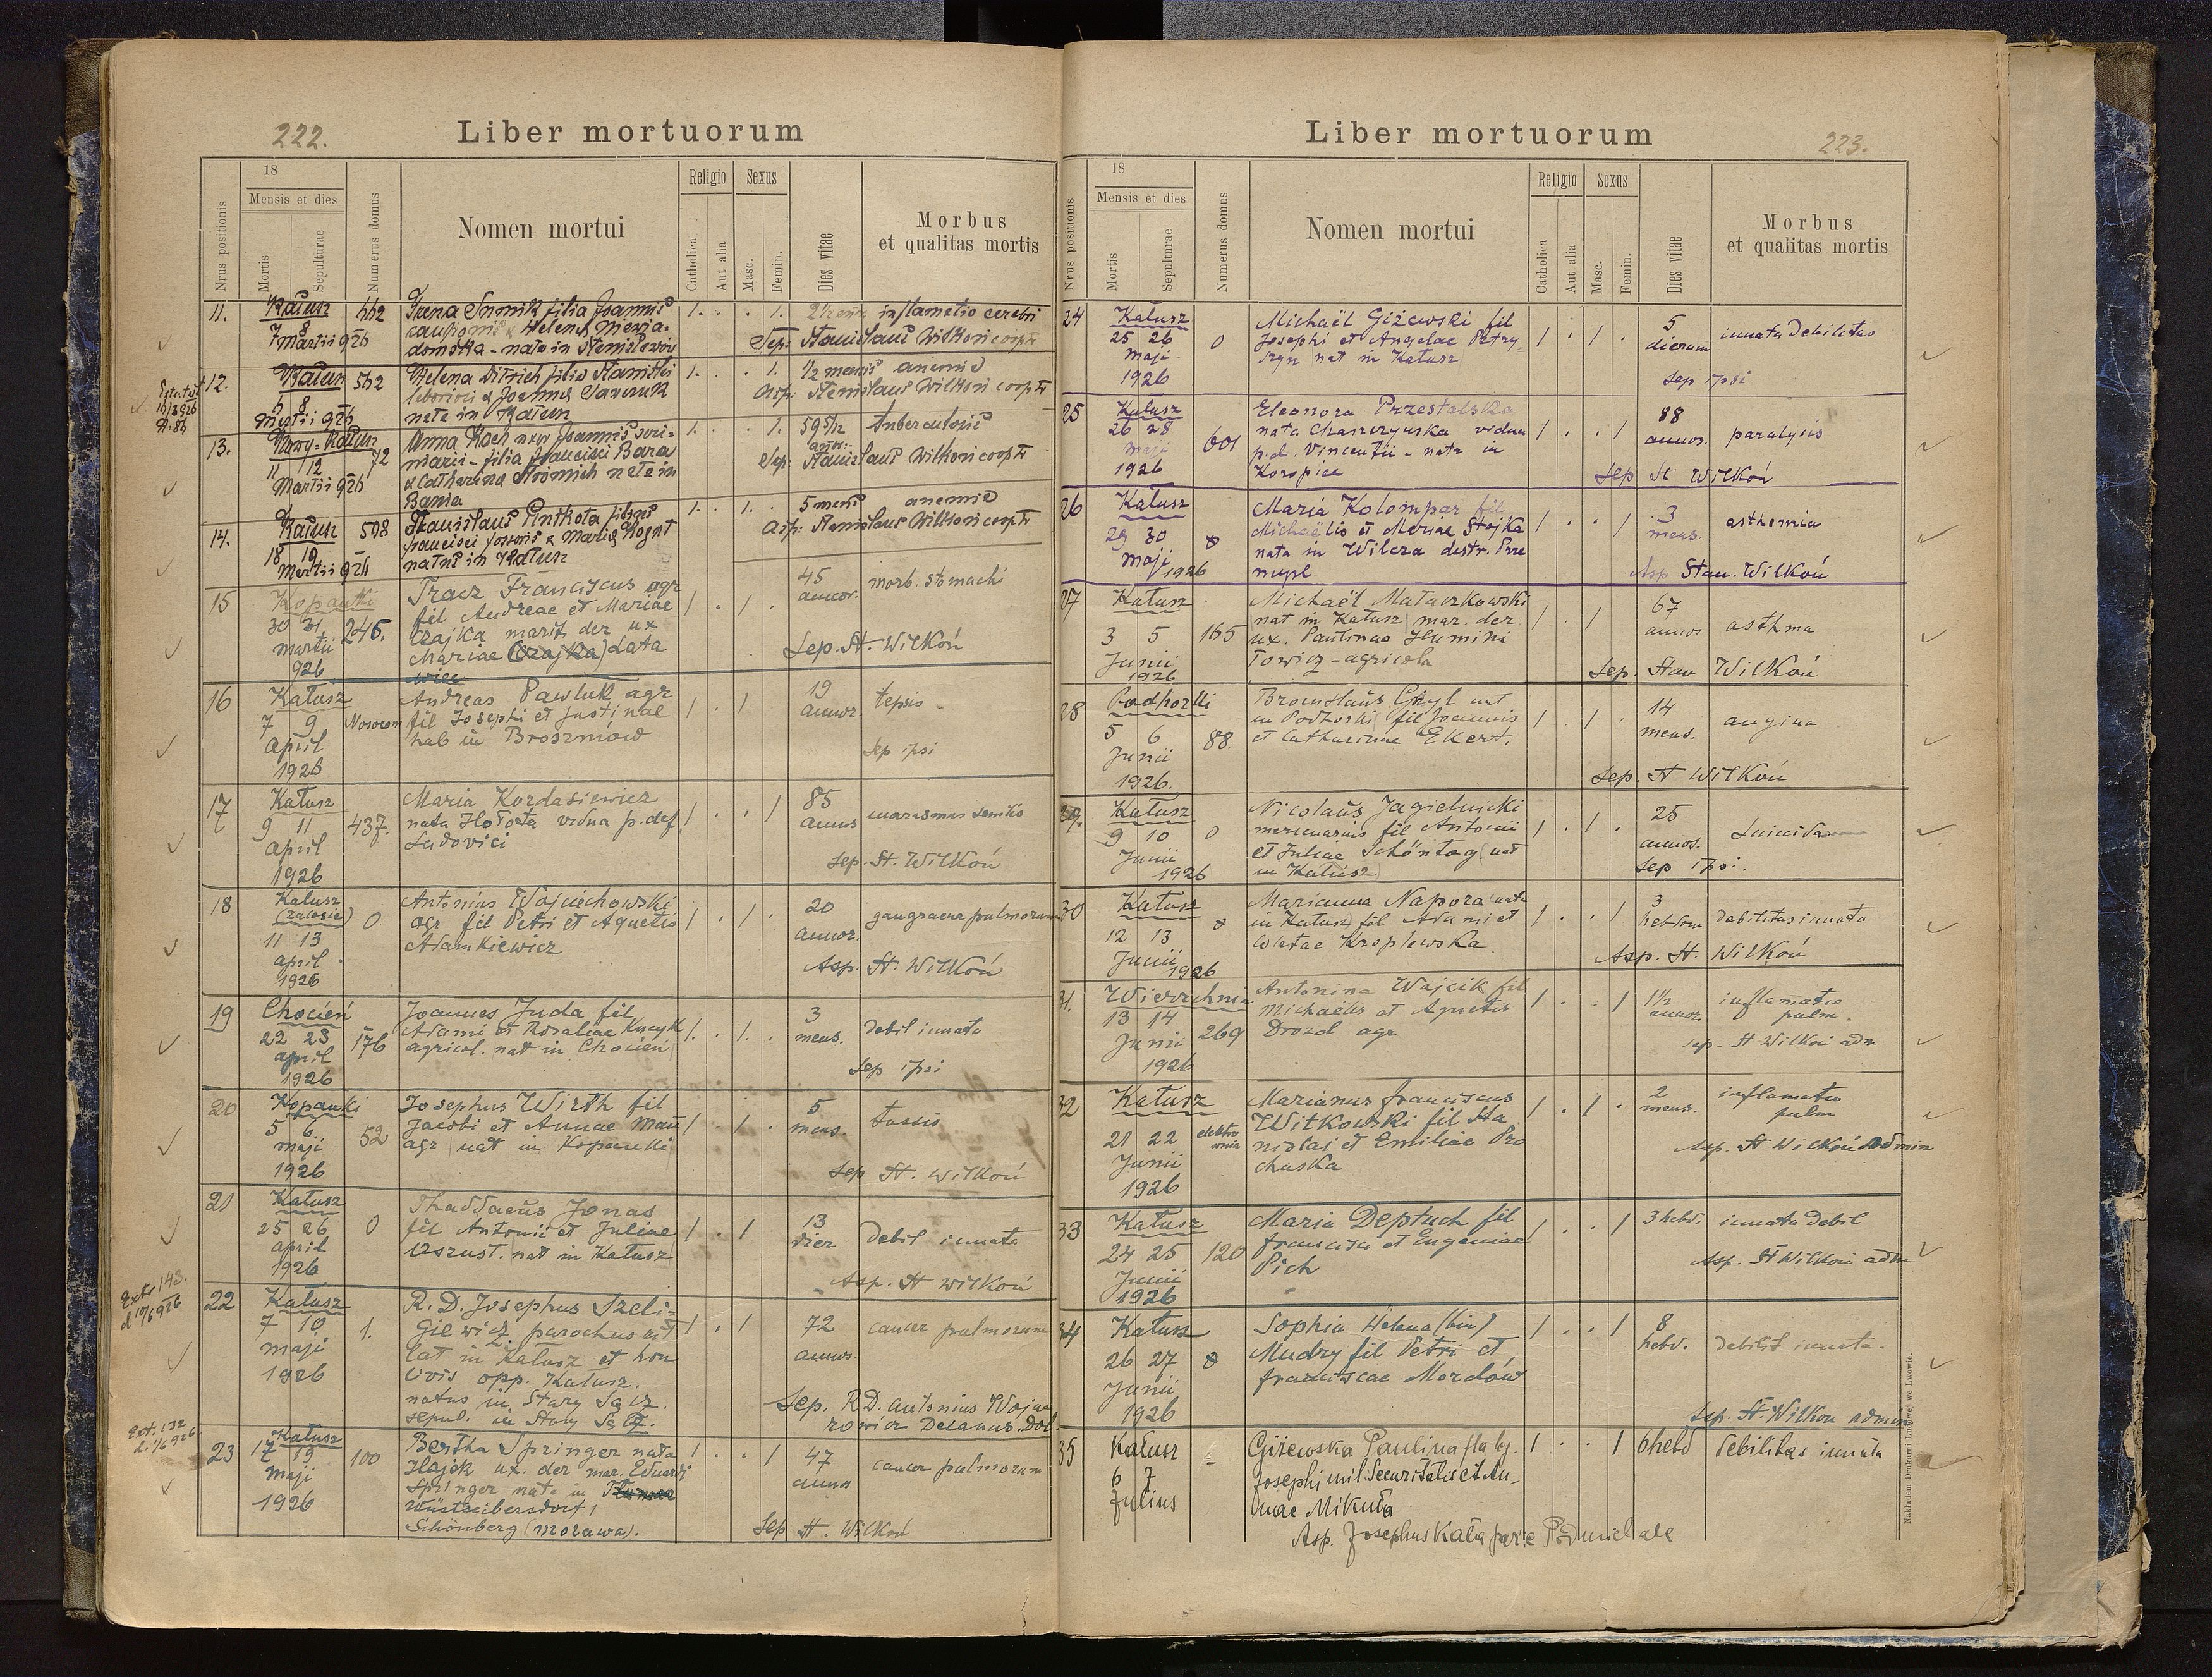 222.
Liber mortuorum
Nrus positionis
18
Mensis et dies
Mortis
Sepulturae
Numerus domus
Nomen mortui
Religio
Catholica
Aut alia
Sexus
Masc.
Femin.
Dies vitae
Morbus
et qualitas mortis
11. Kałusz
7 8
Martii 926
Irena filia Joannis
cauponis & Helenae
nata in Stanisławów
1. . . 1.
inflamatio cerebri
Sep: Stanislaus Wilkoń coop
12. Kałusz 542
6 8
Martii 926
Helena Dittrich filia
& Joanna
nata in Kałusz
1. . . 1.
1/2 mensis anemia
Asp: Stanislaus Wilkoń coop
13. Nowy-Kałusz 72
11 12
Martii 926
Anna Koch uxor Joannis
filia Francisci Bara
& Catharina nata in
Bania
1. . . 1.
tuberculosis
Sep: Stanislaus Wilkoń coop
14. Kałusz 598
18 19
Martii 926
Stanislaus Antkota filius
Francisci & Maria Kogut
natus in Kałusz
1. . 1. .
5 mens anemia
Asp: Stanislaus Wilkoń coop
15 Kopanki
30 31 246.
martii
926
Tracz Franciscus agr
fil Andreae et Mariae
Czajka marit der ux
Mariae (Czajka) Data
wiec
1 . 1 .
45 annor. morb. stomachi
Sep. St. Wilkoń
16 Kałusz
7 9 Nosocom
april
1926
Andreas Pawluk agr
fil Josephi et Justinae
hab in Broszniów
1 . 1
19 annor. tepsis
Sep ipsi
17 Kałusz
9 11 437.
april
1926
Maria Kordasiewicz
nata Hołota vidua p. def
Ludovici
1 . . 1
85 annos marasmus senilis
Sep. St. Wilkoń
18 Kałusz
(Zalesie) 0
11 13
april
1926
Antonius Wojciechowski
agr fil Petri et Agnetis
Adamkiewicz
1 . 1 .
20 annor. gangraena pulmorum
Asp. St. Wilkoń
19 Chocień
22 23 176
april
1926
Joannes Juda fil
Adami et Rosaliae Kucyk
agricol. nat in Chocień
1. . 1. .
3 mens. debil innata
Sep ipsi
20 Kopanki
5 6 52
maji
1926
Josephus Wirth fil
Jacobi et Annae Mau
agr nat in Kopanki
1 . 1 .
5 mens. tussis
Sep St. Wilkoń
21 Kałusz
25 26 0
april
1926
Thaddaeus Jonas
fil Antonii et Juliae
Uszust. nat in Kałusz
1 . 1
13 dier debil innata
Asp. St Wilkoń
Extr 143.
d 19/6 926
22 Kałusz
7 10 1.
maji
1926
R. D. Josephus Szeli-
giewicz parochus r. l.
lat in Kałusz et hon
civis opp. Kałusz.
natus in Stary Sącz.
sepul. in Stary Sącz.
1 . 1
72 annos. cancer pulmorum
Sep. R D. Antonius Wojna
rowicz Decanus Dol.
Ext. 132
d. 1/6 926
23 Kałusz
17 19 100
maji
1926
Bertha Springer nata
Hajek ux. der mar. Eduardi
Springer nata in
Wüstseibersdorf,
Schönberg (Morawa).
1 . . 1
47 annos cancer pulmorum
Sep St. Wilkoń
Liber mortuorum
223.
Nrus positionis
18
Mensis et dies
Mortis
Sepulturae
Numerus domus
Nomen mortui
Religio
Catholica
Aut alia
Sexus
Masc.
Femin.
Dies vitae
Morbus
et qualitas mortis
24 Kałusz
25 26 0
maji
1926
Michaël Giżewski fil
Josephi et Angelae Petry-
szyn nat in Kałusz
1 . 1 .
5 dierum innata debilitas
Sep ipsi
25 Kałusz
26 28 601
maji
1926
Eleonora Przestalska
nata Chaszczynska vidua
p. d. Vincentii - nata in
Koropiec
1 . . 1
88 annos. paralysis
Sep St Wilkoń
26 Kałusz
29 30 0
maji
1926
Maria Kolompar fil
Michaëlis et Mariae Stojka
nata in Wilcza distr. Prze
mysl
1 . . 1
3 mens. asthenia
Asp Stan. Wilkoń
27 Kałusz
3 5 165
Junii
1926
Michaël Małaczkowski
nat in Kałusz mar. der
ux. Paulinae Humini
towicz - agricola
1 . 1
67 annos asthma
Sep. Stan Wilkoń
28 Podhorki
5 6 88.
Junii
1926.
Bronislaus Gżyl nat
in Podhorki fil Joannis
et Catharinae Ekert.
1 . 1 .
14 mens. angina
Sep. St Wilkoń
29. Kałusz
9 10 0
Junii
1926
Nicolaus Jagielnicki
mercenarius fil Antonii
et Juliae Schöntag nat
in Kałusz
1 . 1 .
25 annos.
Sep ipsi.
30 Kałusz
12 13 0
Junii
1926
Marianna Napora nata
in Kałusz fil Adami et
Coletae Kroplewska
1 . . 1
3 hebdom debilitas innata
Asp. St. Wilkoń
31. Wierzchnia
13 14 269
Junii
1926
Antonina Wojcik fil
Michaëlis et Agnetis
Drozd agr
1 . . 1
1 1/2 annor. inflamatio
pulm.
Sep. St Wilkoń adm
32 Kałusz
21 22 elektro
wnia
Junii
1926
Marianus Franciscus
Witkowski fil Sta
nislai et Emiliae Pro
chaska
1 . 1 .
2 mens. inflamatio
pulm
Asp. St Wilkoń Admin
33 Kałusz
24 25 120
Junii
1926
Maria Deptuch fil
Francisci et Eugeniae
Pich
1 . . 1
3 hebd. innata debil
Asp. St Wilkoń adm
34 Kałusz
26 27 0
Junii
1926
Sophia Helena (bin)
Mudry fil Petri et
Franciscae Mordów
1 . . 1
8 hebd. debilit innata.
Asp. St. Wilkoń admin
35 Kałusz
6 7
Julius
Giżewska Paulina fla leg.
Josephi mil. Securitatis et An-
nae Mikuła
1 . . 1
6 hebd debilitas innata
Asp. Josephus Kała
Nakładem Drukarni Ludowej we Lwowie.